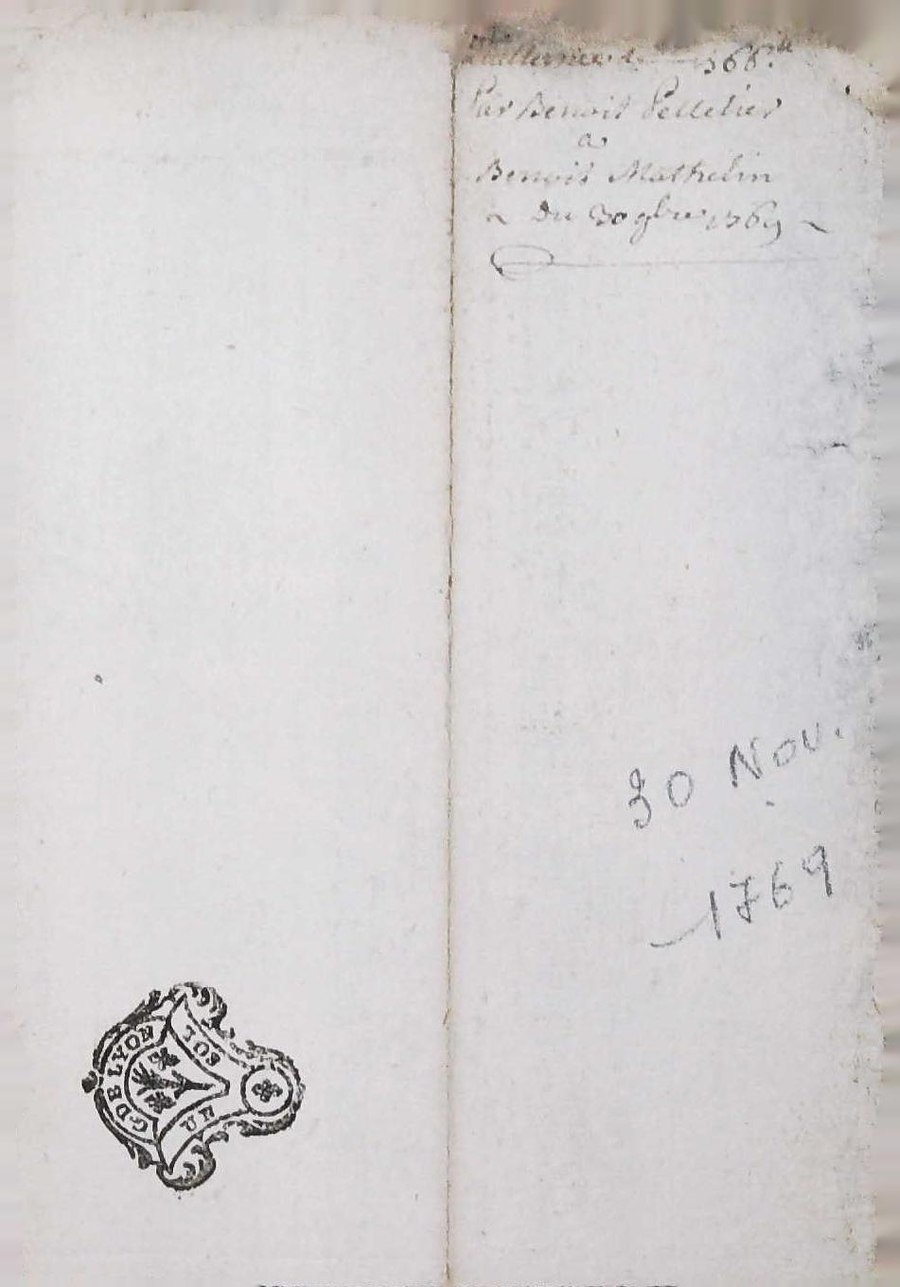 366.tt
Par Benoit Pelletier
a
Benoit Mathelin
~ Du 30 9bre 1769 ~
30 Nov.
1769
G. DE LYON
UN SOL